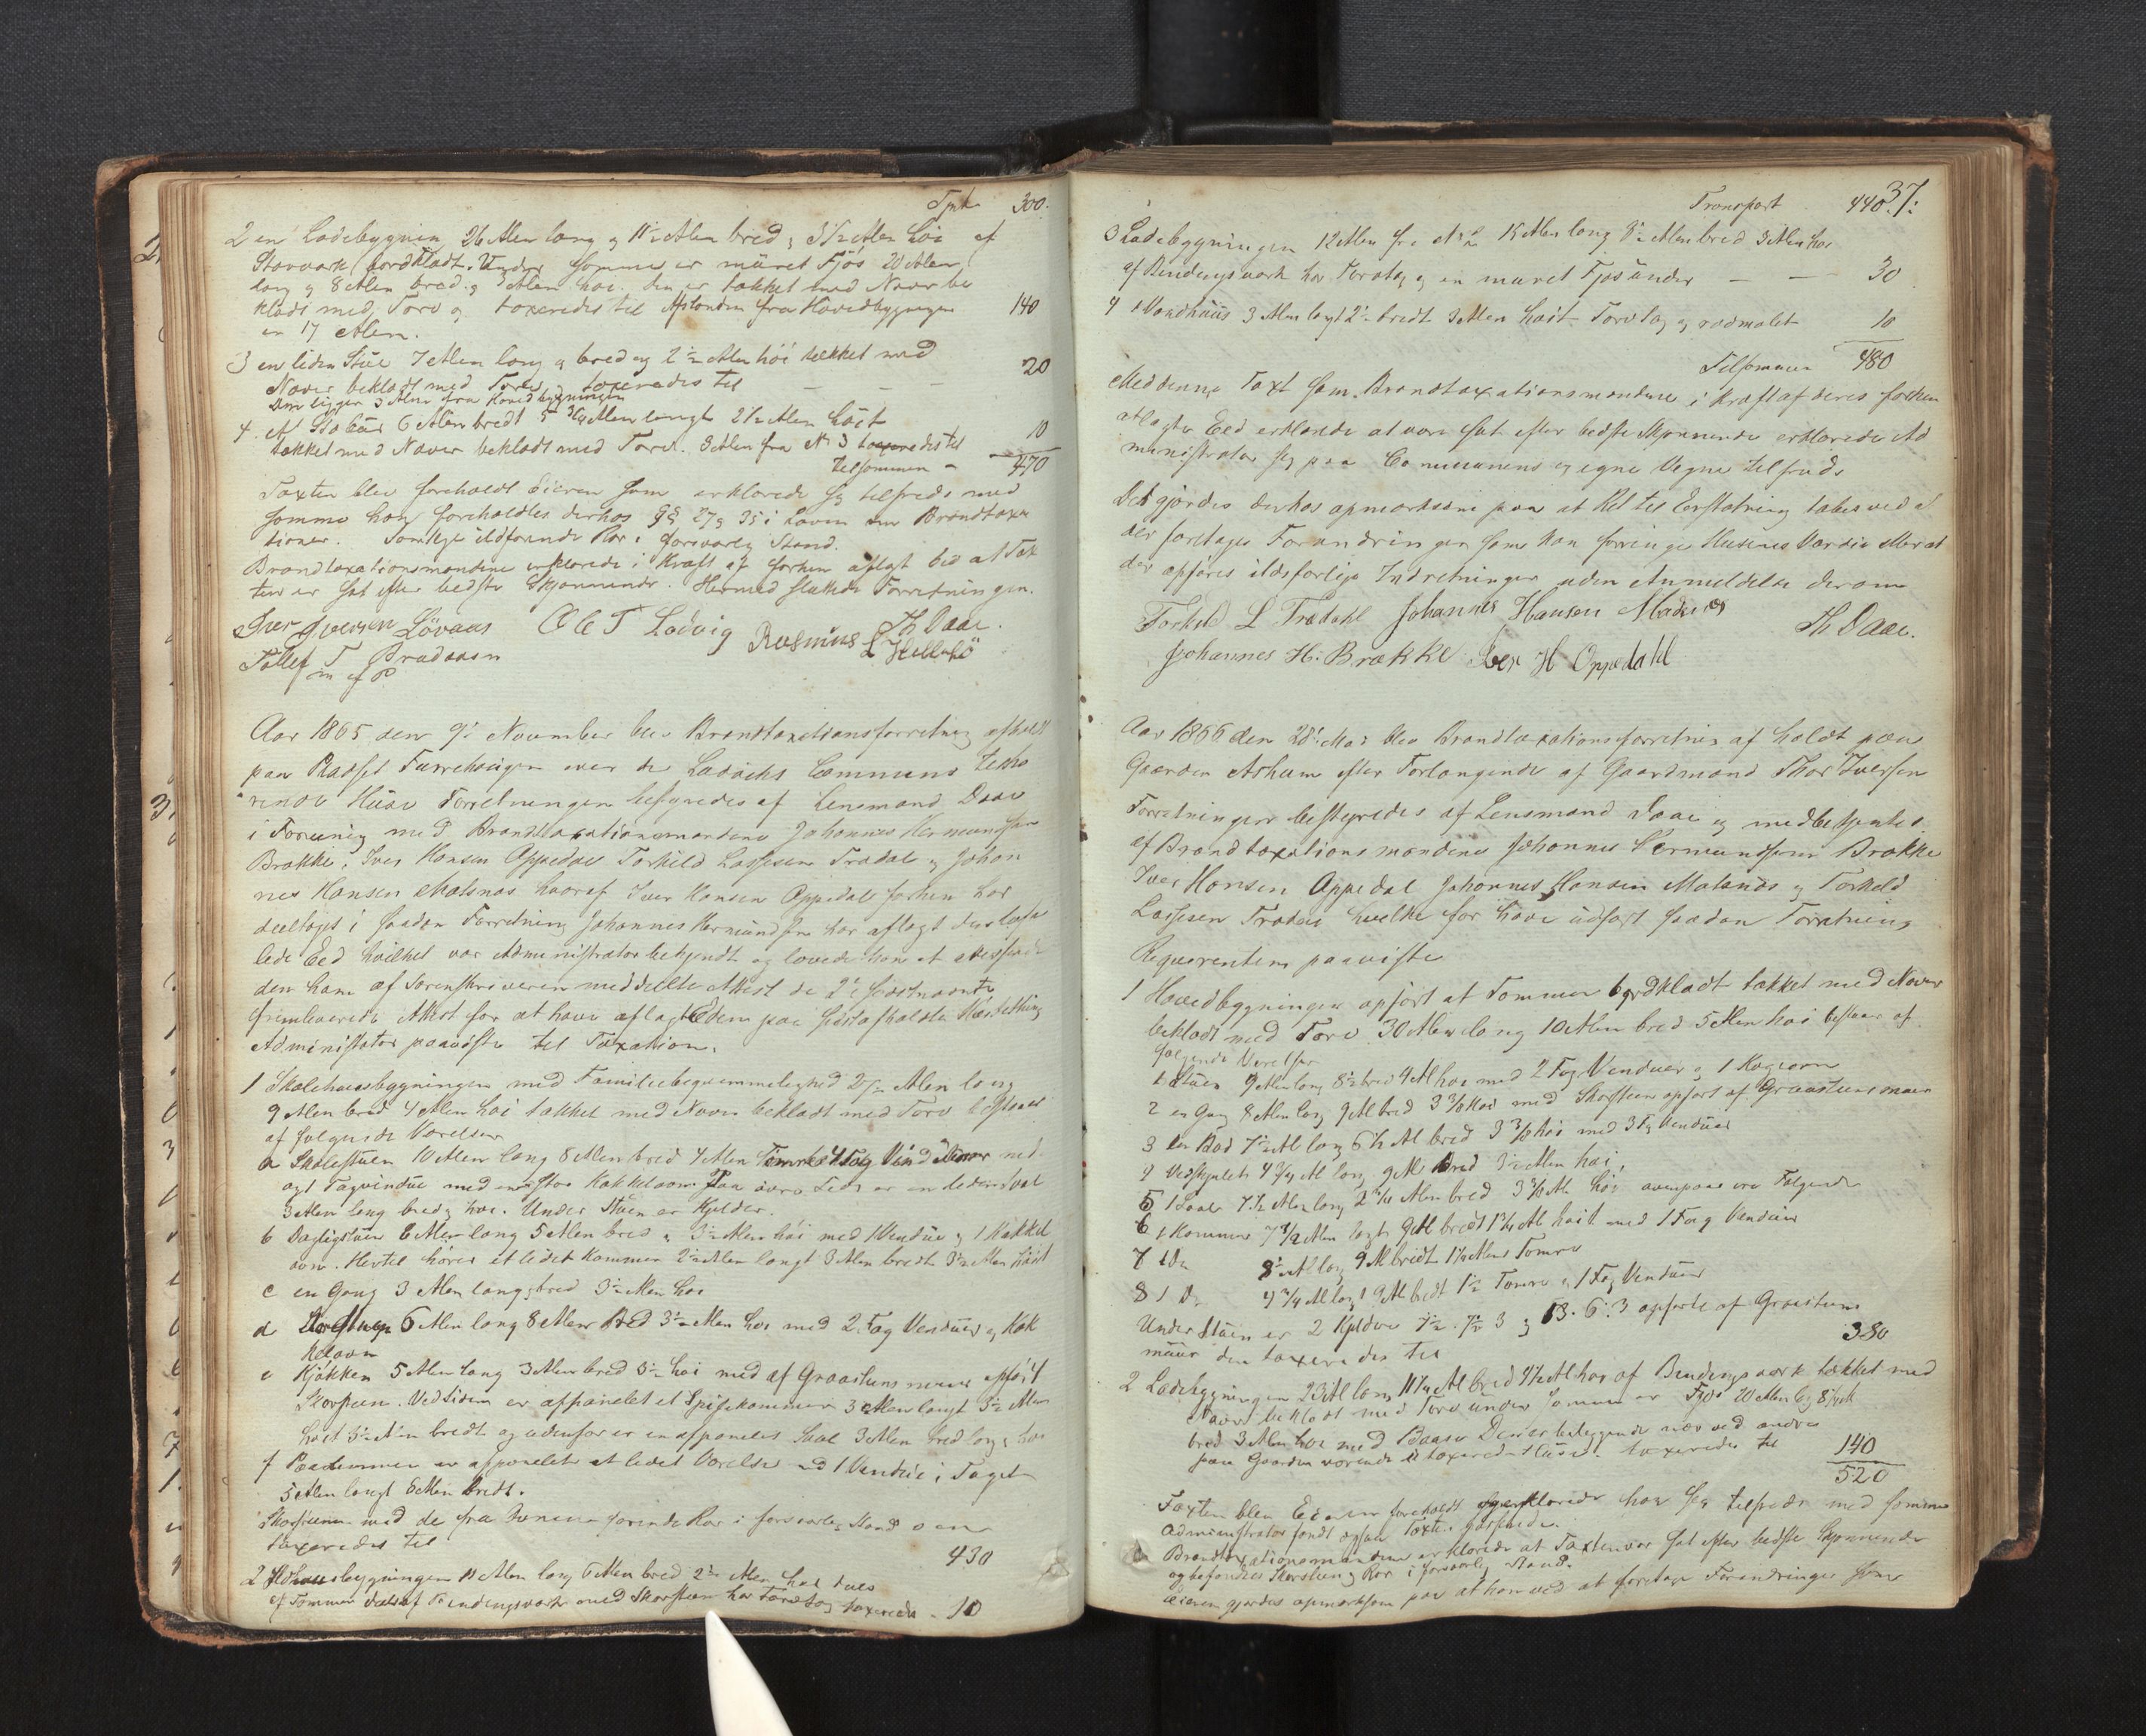 Tpt 300.
2 en Ladebygning 26 Alen lang og 11½ Alen bred, 5½ Alen höi af
Stavværk bordklædt. Under samme er müret Fjös 20 Alen
lang og 8 Alen bred og 3 Alen høi. den er tækket med Næver be
klædt med Torv og taxeredes til Afstanden fra Hovedbygningen 140
er 17 Alen.
3 en liden Stue 7 Alen lang og bred og 2½ Alen höi tækket med
Næver beklædt med Torv, taxeredes til — — — 20
Den ligger 3 Alen fra Hovedbygningen
4. et Stabur 6 Alen bredt 5 3/4 Alen langt 2½ Alen høit
tækket med Næver beklædt med Torv. 3 Alen fra No 3 taxeredes til 10
tilsammen - 470
Taxten blev foreholdt Eieren som erklærede sig tilfreds med
samme han foreholdtes derhos §§ 27 og 35 i Loven om Brandtaxa
tioner. Samtlige ildførende Rör i forsvarlig Stand.
Brandtaxationsmændene erklærede i Kraft af forhen aflagt Ed at Tax
ten er sat efter bedste Skjønnende. Hermed sluttedes Forretningen.
Iver Iversen Lövaas O E T Ladvig Rasmus L Hellebö Th Daae.
Tollef T Bradaasen
m f P
Aar 1865 den 9de November blev Brandtaxationsforretning afholdt
paa Pladset Furrehaugen over de Ladviks Communes tilhø
rende Huse Forretningen bestyredes af Lensmand Daae
i Forening med Brandtaxationsmændene Johannes Hermundsen
Brække, Iver Hansen Oppedal Torkild Lassesen Trædal og Johan
nes Hansen Matsnæs hvoraf Iver Hansen Oppedal forhen har
deeltaget i saadan Forretning Johannes Hermundsen har aflagt den lova
lede Eed hvilket var Administrator bekjendt og lovede han at
den ham af Sorenskriveren meddeelte Attest de 2de sidstnævnte
fremleverede Attest for at have aflagt Eden paa sidstafholdte Høstething
Administrator paaviste til Taxation.
1 Skolehuusbygningen med Familiebequemmelighed 20½ Alen lang
9 Alen bred 4 Alen høi tækket med Næver beklædt med Torv bestaaer
af følgende Værelser
a Skolestuen 10 Alen lang 8 Alen bred 4 Alen
og 1 Tagvindue med en stor Kakkelovn Paa øvre Side er en
3 Alen lang bred og høi. Under Stuen er Kjelder.
b Dagligstuen 6 Alen lang 5 Alen bred og 3½ Alen høi med 1 Vindue og 1 Kakkel
ovn. Hertil hører et lidet Kammer 2½ Alen langt 3 Alen bredt 3½ Alen høit
c en Gang 3 Alen lang og bred 3½ Alen høi
d Storstuen 6 Alen lang 8 Alen bred 3½ Alen høi med 2 Fag Vinduer og Kak
kelovn
e Kjøkken 5 Alen lang 3 Alen bred 3½ høi med af Graasteens muur opført
Skorsteen. Ved Siden er afpanelet et Spisekammer 3 Alen langt 3½ Alen
høit 3½ Alen bredt og udenfor er en afpanelet Sval 3 Alen bred lang og høi
f Paa er afpanelet et lidet Værelse med 1 Vindue i Taget
5 Alen langt 6 Alen bredt.
Skorstenen med de fra Ovnene førende Rør i forsvarlig Stand
taxeredes til 430
2 Ildhuusbygningen 11 Alen lang 6 Alen bred 2½ Alen høi deels
af Tømmer deels af Bindingsværk med Skorsteen har Torvtag taxeredes - 10
37.
Transport 440
3 Ladebygningen 12 Alen fra No 2 15 Alen lang 8½ Alen bred 3 Alen høi
af Bindingsværk har Torvtag og en muret Fjøs under — — 30
4 1 Vandhüüs 3 Alen langt 2½ bredt 3 Alen høit Torvtag og rødmalet 10
Tilsammen 480
Med denne Taxt som Brandtaxationsmændene i Kraft af deres forhen
aflagte Eed erklærede at være sat efter bedste Skjønnende erklærede Ad
ministrator sig paa Communens og egne Vegne tilfreds
Det gjørdes derhos opmærksom paa at Ret til Erstatning tabes ved at
der foretages Forandringer som kan forringe Husenes Værdie eller at
der opføres ildsfarlige Indretninger uden Anmeldelse derom
Torkild L Trædahl Johannes Hansen Madsnæs Th Daae.
Johannes H. Brække Iver H Oppedahl
Aar 1866 den 28de Mai blev Brandtaxationsforretning afholdt paa
Gaarden Asheim efter Forlangende af Gaardmand Thor Iversen
Forretningen bestyredes af Lensmand Daae og medbetjentes
af Brandtaxationsmændene Johannes Hermundsen Brække
Iver Hansen Oppedal Johannes Hansen Matsnæs og Torkeld
Lassesen Trædal hvilke før have udført saadan Forretning
Requirenten paaviste
1 Hovedbygningen opført af Tømmer bordklædt tækket med Næver
beklædt med Torv 30 Alen lang 10 Alen bred 5 Alen høi bestaar af
følgende Værelser
1 Stuen 9 Alen lang 8½ bred 4 Al høi med 2 Fag Vinduer og 1 Kogeovn
2 en Gang 8 Alen lang 9 Al bred 3 3/8 høi med Skorsteen opført af Graasteensmuur
3 en Bod 7½ Al lang 6½ Al bred 3 3/8 høi med 3 Fag Vinduer
4 Vedskjulet 4 3/4 Al lang 9 Al Bred 3½ Alen høi,
5 1 Sval 7½ Alen lang 2 3/4 Alen bred 3 3/8 Al høi ovenpaa ere Følgende
6 1 Kammer 7½ Alen langt 9 Al bredt 1¾ Al høit med 1 Fag Vinduer
7 1 Do 8½ Al lang 9 Al bredt 1½ Alens Tømre
8 1 Do 4 3/4 Al langt 9 Al bredt 1½ Tømre og 1 Fag Vinduer
Under Stuen er 2 Kjeldere 7½. 7½ 3 og 13. 6. 3 opførte af Graasteens
muur den taxeredes til 380
2 Ladebygningen 23 Al lang 11¼ Al bred 4½ Al høi af Bindingsværk tækket med
Næver beklædt med Torv under samme er Fjøs 20 Alen lang
bred 3 Alen høi med Baase Den er beliggende nær ved andre
paa Gaarden værende utaxerede Huse. taxeredes til 140
520
Taxten blev Eieren foreholdt og erklærede han sig tilfreds med samme
Administrator fandt ogsaa Taxten passende.
Brandtaxationsmændene erklærede at Taxten var sat efter bedste Skjønnende
og befandtes Skorsteen og Rør i forsvarlig Stand.
Eieren gjordes opmærksom paa at han ved at foretage Forandringer som